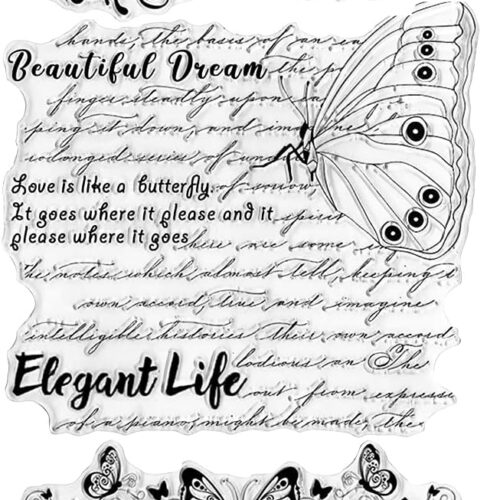 hands, the basis of an ea
Beautiful Dream
finger steadily upon
ping it down, and imagine
rolonged series of
Love is like a butterfly. of sorrow,
It goes where it please and it spirit
please where it goes here are some
the notes which almost tell, keeping
own accord, true and imagine
intelligible histories their own accord
lodious an The
Elegant Life out from expresse
of a piano, might be made, the